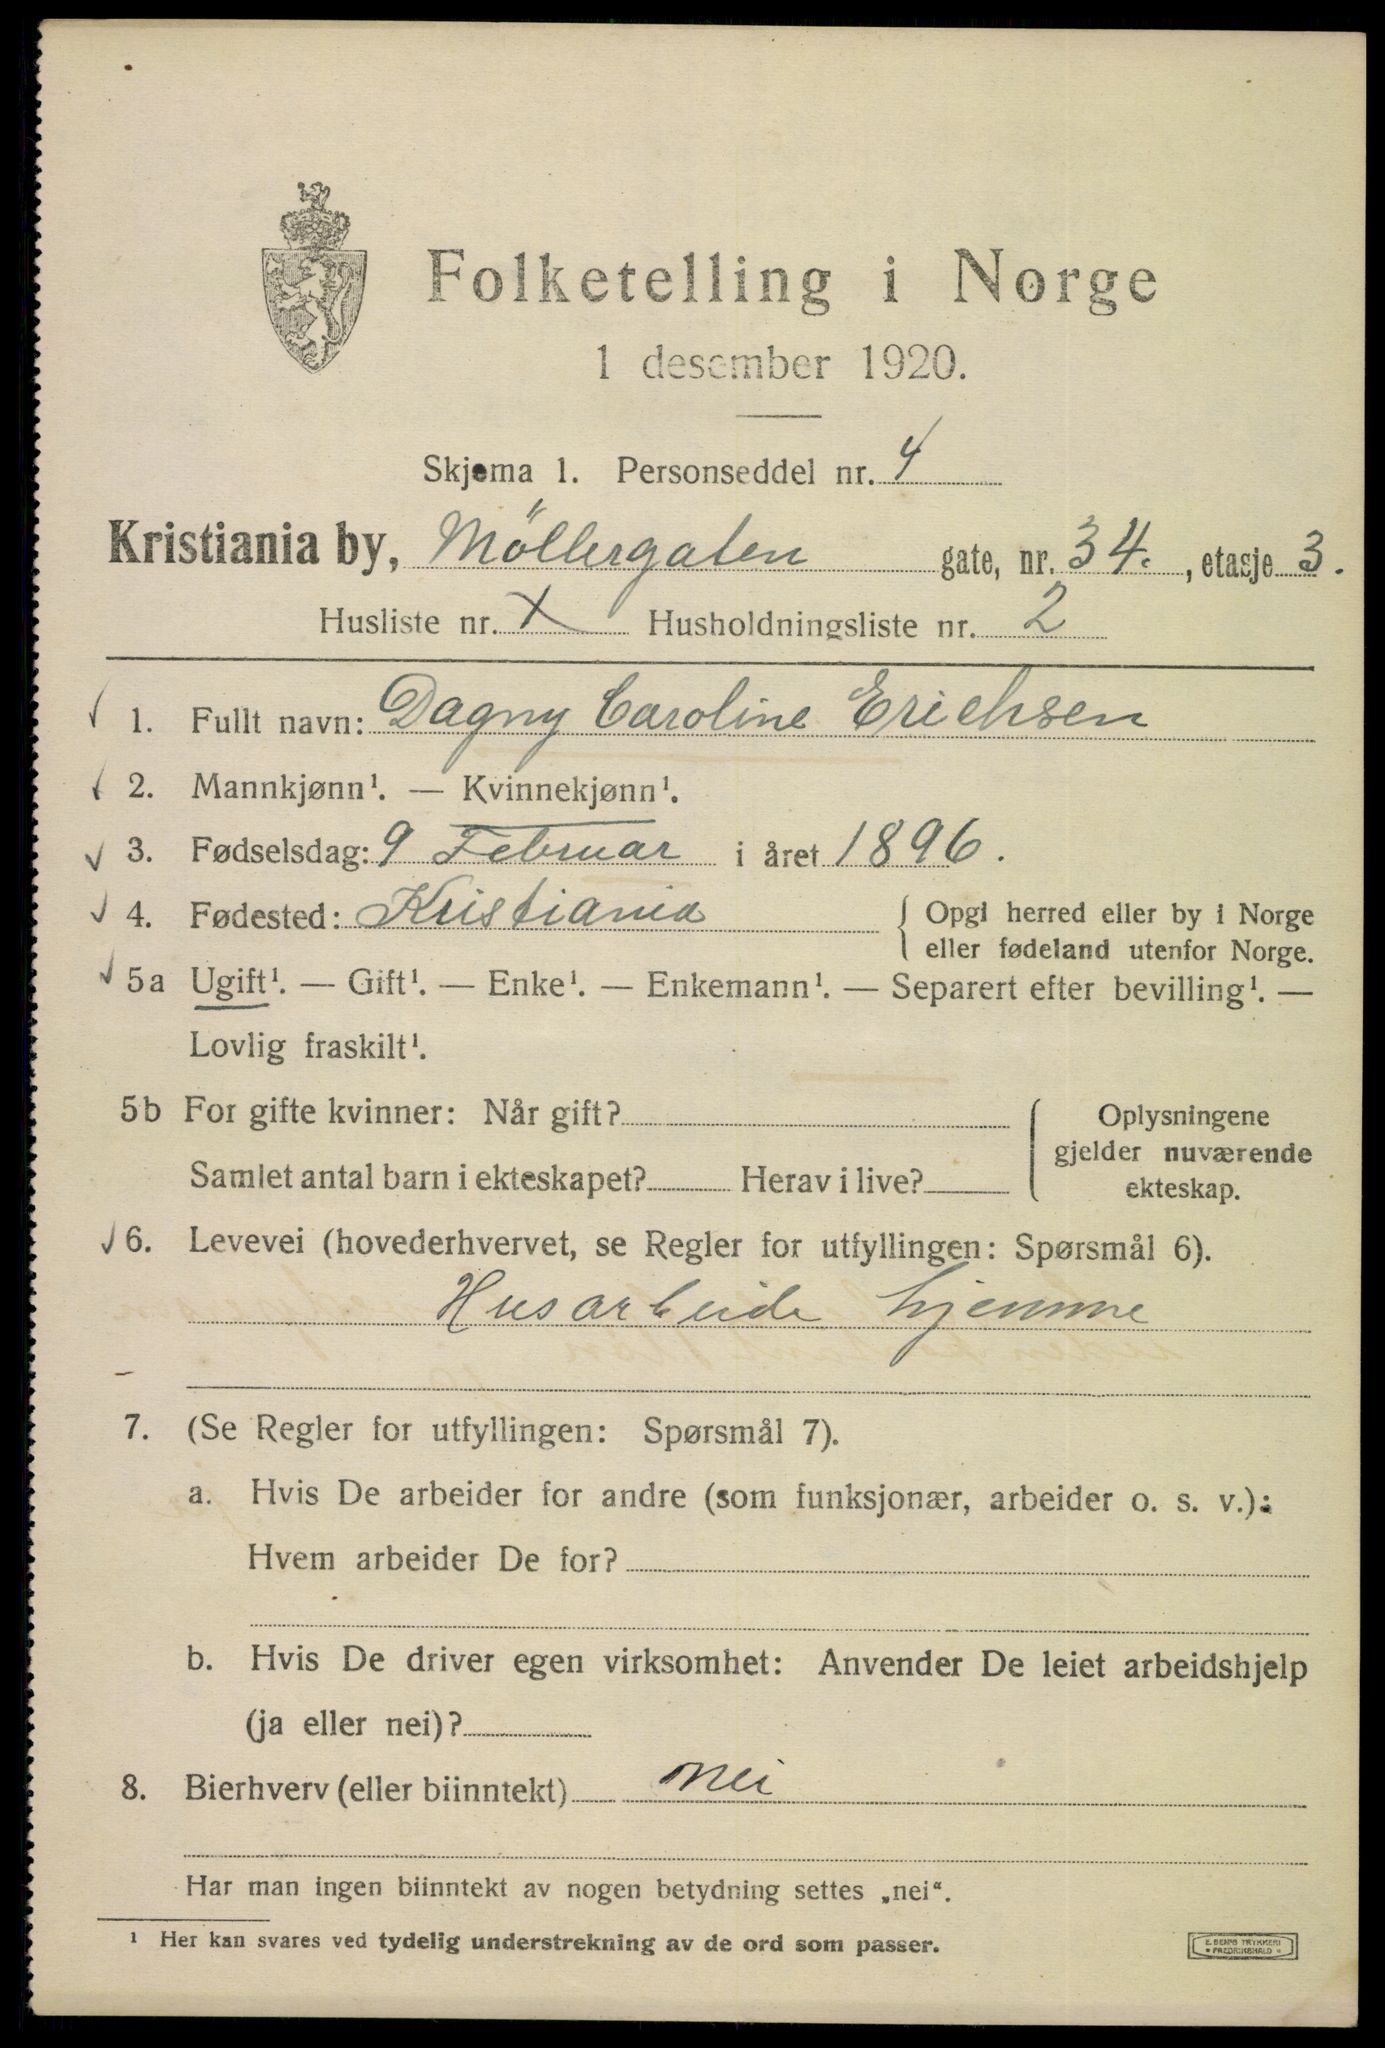 Folketelling i Norge
1 desember 1920.
Skjema 1. Personseddel nr. 4
Kristiania by, Möllergaten gate, nr. 34., etasje 3.
Husliste nr. X Husholdningsliste nr. 2
1. Fullt navn: Dagny Caroline Erichsen
2. Mannkjønn¹. — Kvinnekjønn¹.
3. Fødselsdag: 9 Februar i året 1896.
4. Fødested: Kristiania { Opgi herred eller by i Norge
eller fødeland utenfor Norge.
5a Ugift¹. — Gift¹. — Enke¹. — Enkemann¹. — Separert efter bevilling¹. —
Lovlig fraskilt¹.
5b For gifte kvinner: Når gift? { Oplysningene
gjelder nuværende
Samlet antal barn i ekteskapet? Herav i live? ekteskap.
6. Levevei (hovederhvervet, se Regler for utfyllingen: Spørsmål 6).
Husarbeide hjemme
7. (Se Regler for utfyllingen: Spørsmål 7).
a. Hvis De arbeider for andre (som funksjonær, arbeider o. s. v.):
Hvem arbeider De for?
b. Hvis De driver egen virksomhet: Anvender De leiet arbeidshjelp
(ja eller nei)?
8. Bierhverv (eller biinntekt) nei
Har man ingen biinntekt av nogen betydning settes „nei“.
¹ Her kan svares ved tydelig understrekning av de ord som passer.
E. SEMS TRYKKERI
FREDRIKSHALD